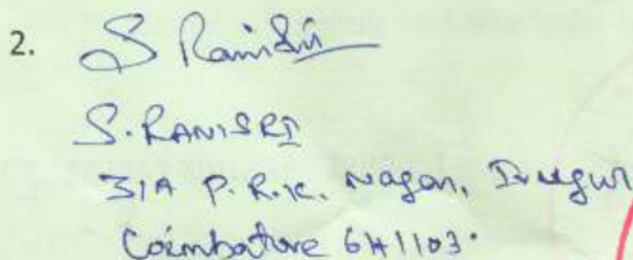 2. S Ranisri
S. RANISRI
31A P.R.K. Nagar, Irugur
Coimbatore 641103.